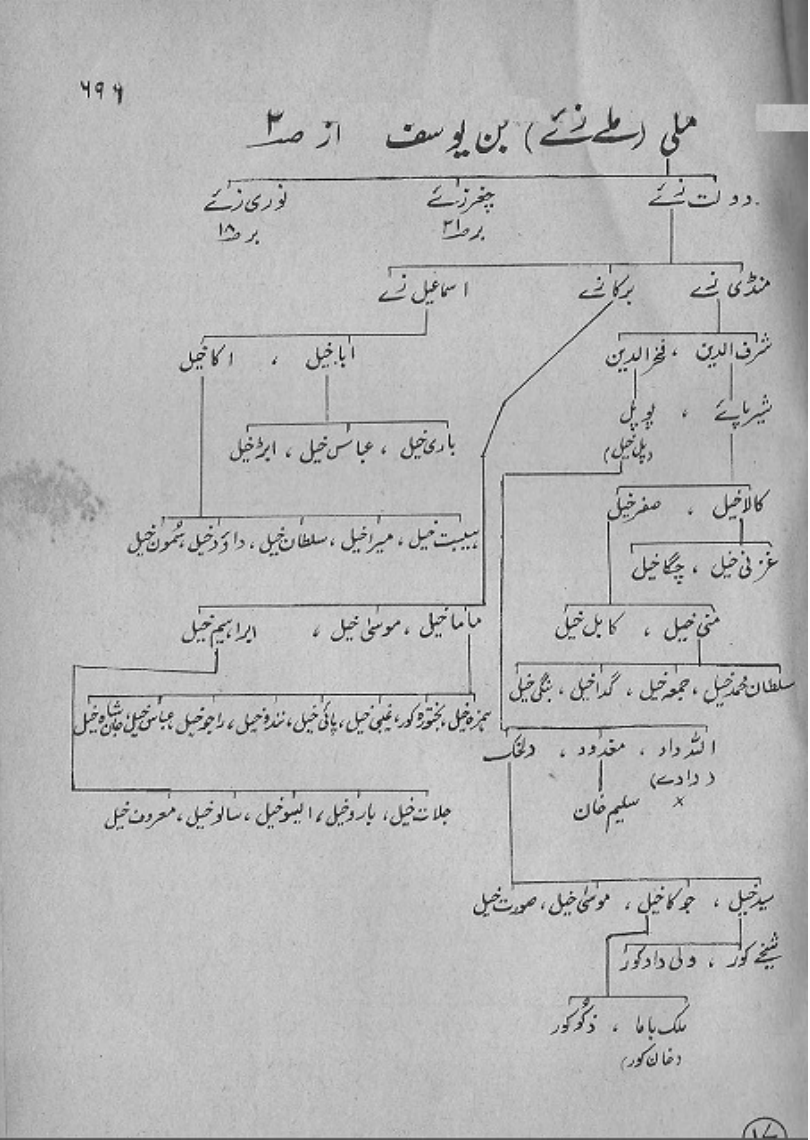 ۶۹۶
ملی (ملے زئے) بن یوسف از صـ ۳
دولت زئے چغرزئے نوری زئے
بر صـ ۲۱ بر صـ ۱۸
منڈی زے برکا زے اسماعیل زے
شرف الدین ، فخرالدین اباخیل ، اکاخیل
شیرپائے ، پوپل
(پلی خیل)
باری خیل ، عباس خیل ، ابڑخیل
کالاخیل ، صفرخیل
ہیبت خیل ، میراخیل ، سلطان خیل ، داؤدخیل ، شمون خیل
غزنی خیل ، چگاخیل
منی خیل ، کابل خیل
ماما خیل ، موسیٰ خیل ، ابراہیم خیل
سلطان محمدخیل ، جمعہ خیل ، گداخیل ، بنگی خیل
ہمزہ خیل ، بختورہ کور ، غلبی خیل ، پائی خیل ، نندوخیل ، راجوخیل ، عباس خیل ، خان شاہ خیل
اللہ داد ، مغدود ، دلخک
(دادے)
× سلیم خان
جلات خیل ، باروخیل ، ایسوخیل ، سالوخیل ، معروف خیل
سیدخیل ، جوکاخیل ، موسیٰ خیل ، صورت خیل
شیخے کور ، ولی داد کور
ملک بابا ، ذکو کور
(خان کور)